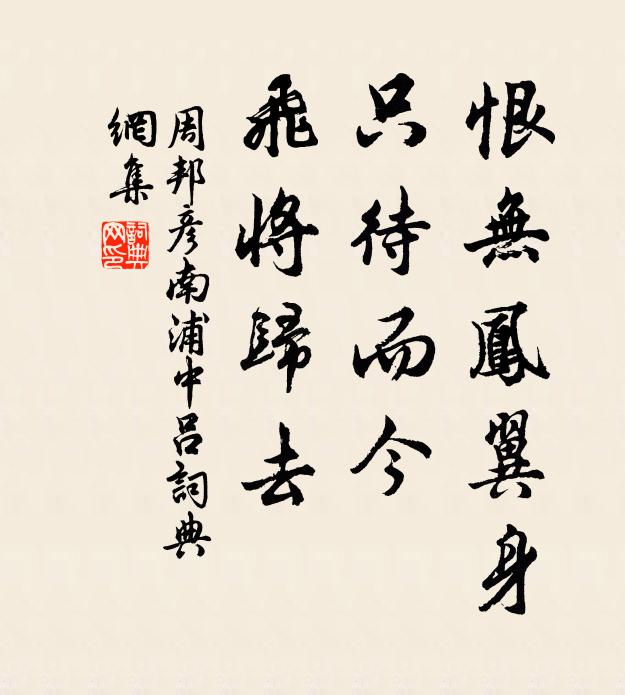 恨無鳳翼身
只待而今
飛將歸去
周邦彥南浦中呂詞典
網集
詞典
网印